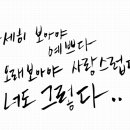 세히 보아야
예쁘다
오래보아야 사랑스럽다
너도 그렇다..